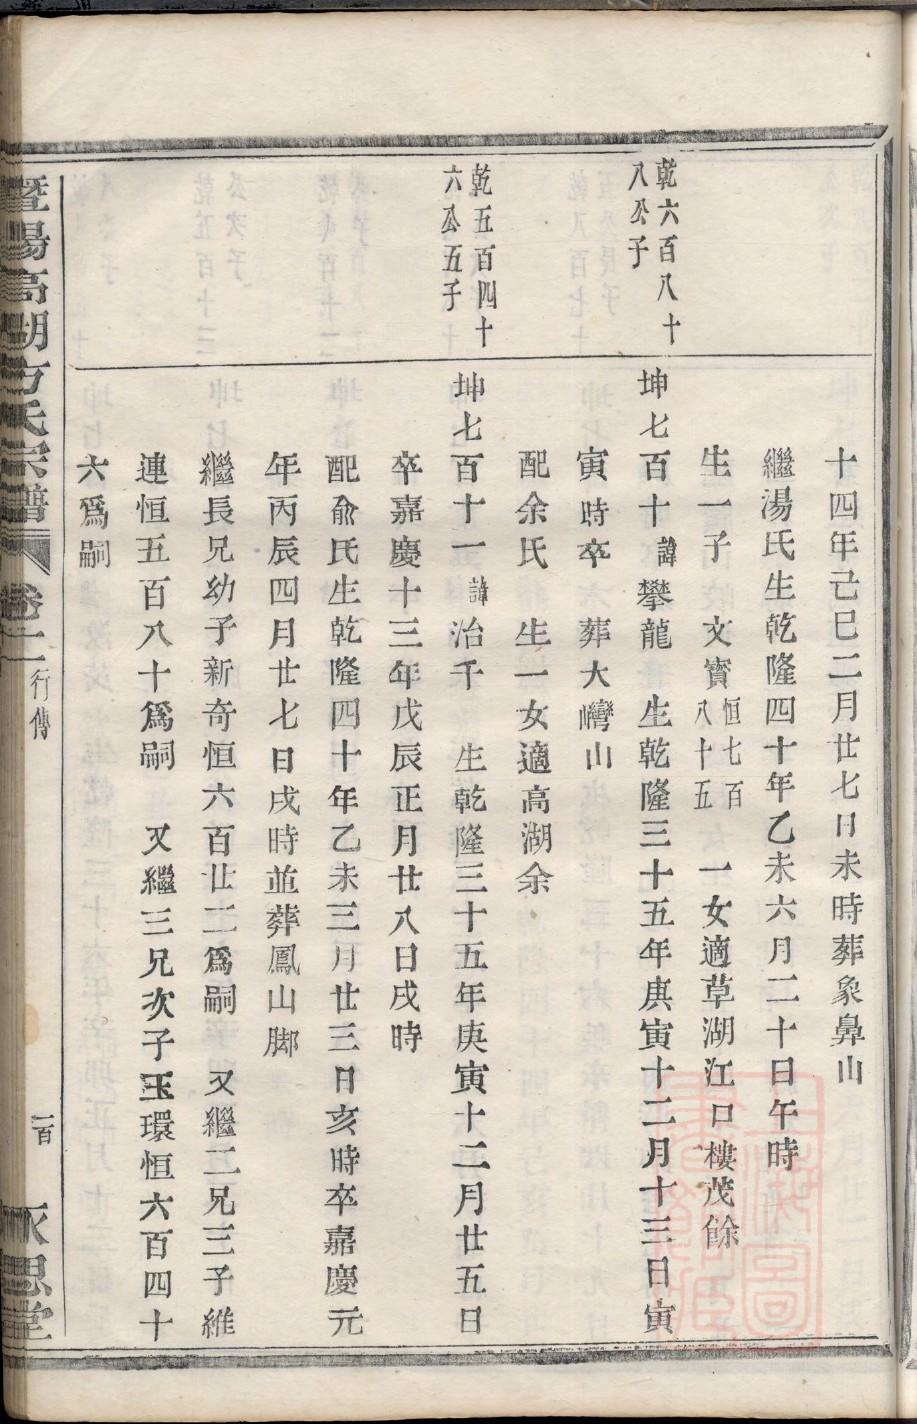 十四年己巳二月廿七日未時葬象鼻山
繼湯氏生乾隆四十年乙未六月二十日午時
生一子文寳恒七百八十五 一女適草湖江口樓茂餘
乾六百八十八公子
坤七百十諱攀龍 生乾隆三十五年庚寅十二月十三日寅
寅時卒木葬大灣山
配余氏 生一女適高湖余
乾五百四十六公五子
坤七百十一諱治千 生乾隆三十五年庚寅十二月廿五日
卒嘉慶十三年戊辰正月廿八日戌時
配俞氏生乾隆四十年乙未三月廿三日亥時卒嘉慶元
年丙辰四月廿七日戌時並葬鳳山脚
繼長兄幼子新奇恒六百廿二爲嗣 又繼二兄三子維
連恒五百八十爲嗣 又繼三兄次子玉環恒六百四十
六爲嗣
暨陽高湖方氏宗譜 卷二 行傳 一百 永思堂